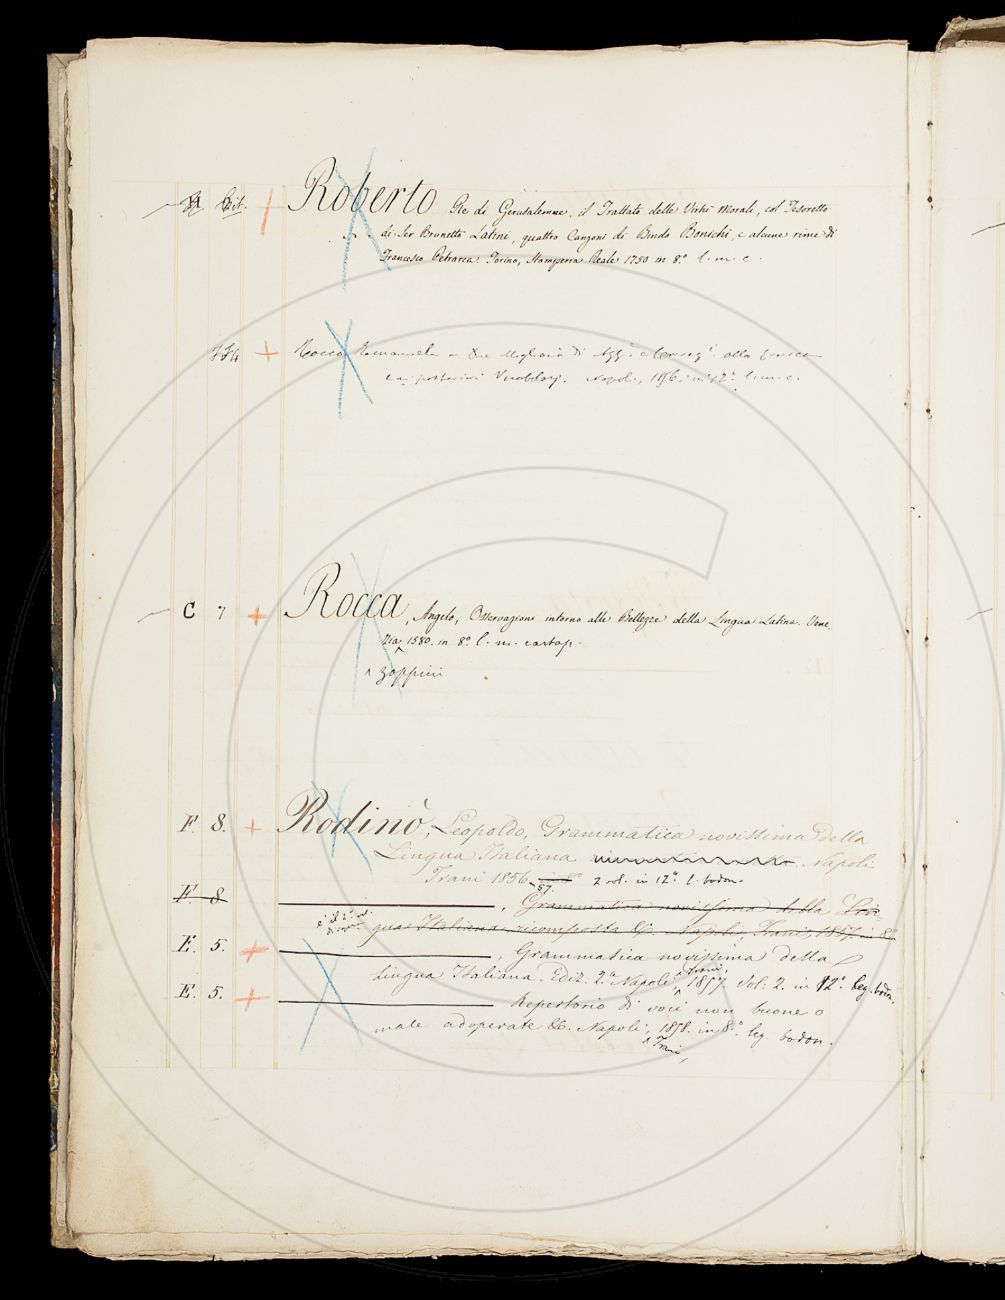 Cit. Roberto Re di Gerusalemme, il Trattato delle Virtù Morali, col Tesoretto
di Ser Brunetto Latini, quattro Canzoni di Bindo Bonichi, e alcune rime di
Francesco Petrarca. Torino, Stamperia Reale 1750 in 8.º l. m. c.
Rocco Emanuele
posteriori Napoli, 1856, in 12.º l. m. c.
C 7 Rocca, Angelo, Osservazioni intorno alle Bellezze della Lingua Latina. Vene-
zia 1580. in 8.º l. m. cartap.
^ Zoppini
F. 8. Rodinò, Leopoldo, Grammatica novissima della
Lingua Italiana Napoli
Trani 1856 in 8º 2 vol. in 12.º l. bodon.
57.
F. 8 , Grammatica novissima della Lin-
è il 2.º vol.
gua Italiana, ricomposta &c. Napoli, Trani, 1857. in 8º
E. 5. , Grammatica novissima della
Lingua Italiana. Ediz. 2.ª Napoli, ^ Trani, 1857. Vol: 2. in 12.º leg. bodon.
E. 5. Repertorio di voci non buone o
male adoperate &c. Napoli, 1858. in 8.º leg. bodon.
^ Trani,